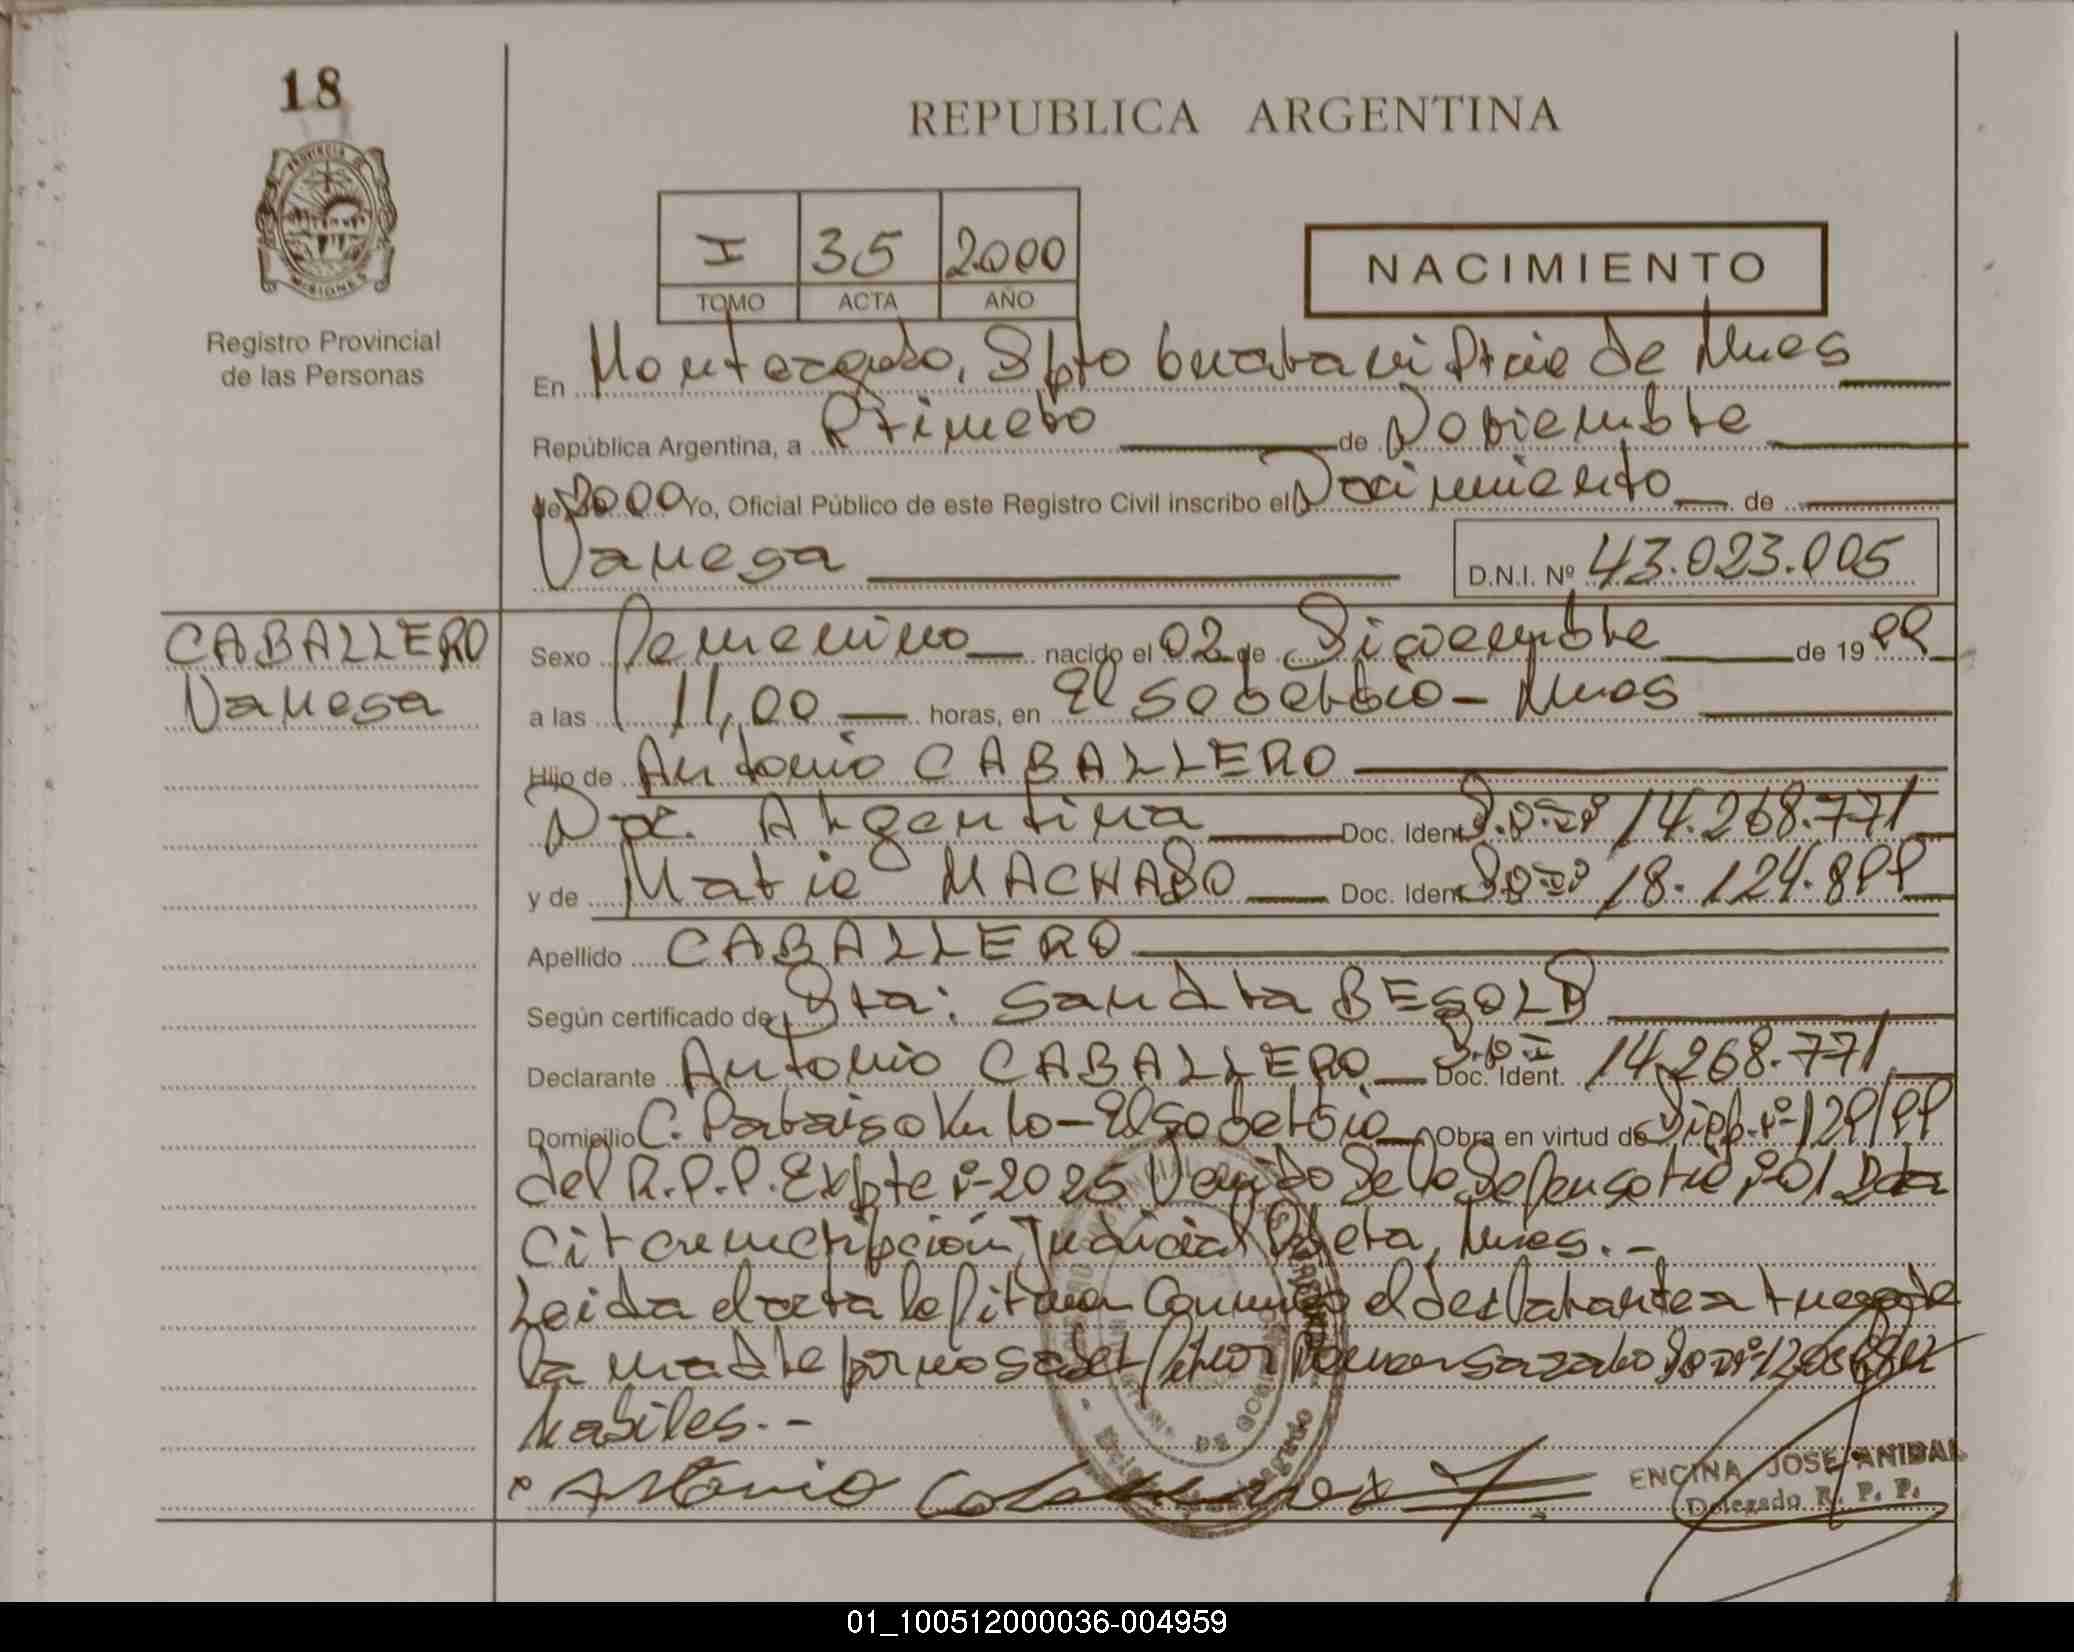 18
REPUBLICA ARGENTINA
PROVINCIA DE
MISIONES
Registro Provincial
de las Personas
I 35 2000
TOMO ACTA AÑO
NACIMIENTO
En Monteagudo, Dpto Guarani Pcia de Mnes
República Argentina, a Primero de Noviembre
de 2000 Yo, Oficial Público de este Registro Civil inscribo el Nacimiento de
Vanesa D.N.I. Nº 43.023.005
CABALLERO
Vanesa
Sexo Femenino nacido el 02 de Diciembre de 1999
a las 11,00 horas, en El Soberbio - Mnes
Hijo de Antonio CABALLERO
Nac. Argentina Doc. Ident. D.N.I. Nº 14.268.771
y de Maria MACHADO Doc. Ident. D.N.I. Nº 18.124.899
Apellido CABALLERO
Según certificado de Sra: Sandra BESOLD
Declarante Antonio CABALLERO D.N.I. Doc. Ident. 14.268.771
Domicilio C. Paraiso - El Soberbio Obra en virtud de Disp. nº 129/99
del R.P.P. Expte nº 2025 Venido de la Defensoria nº 01 2da
Circunscripción Judicial Oberá, Mnes. -
Leida el acta la firman Conmigo el declarante a ruego de
la madre por no saber firmar
habiles. -
Antonio
ENCINA JOSE ANIBAL
Delegado R. P. P.
01_100512000036-004959